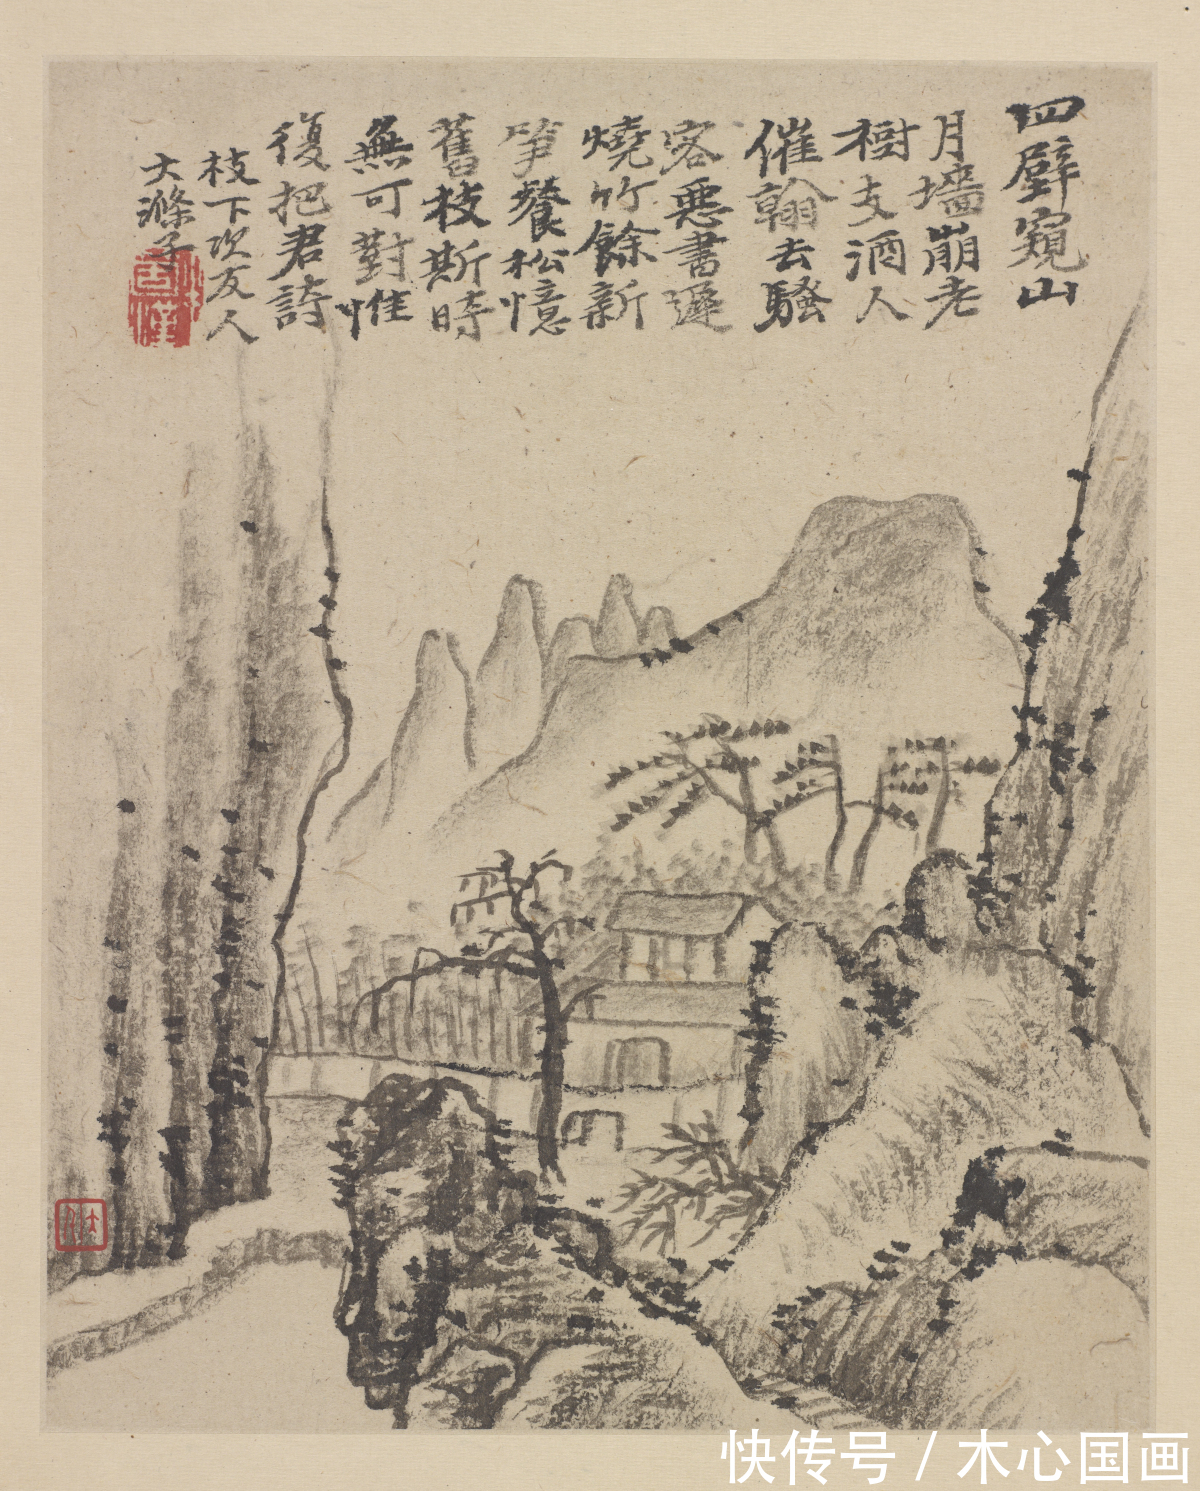 四壁窺山
月墻崩老
樹支酒人
催翰去騷
客惡書遲
燒竹餘新
筍餐松憶
舊枝斯時
無可對惟
復把君詩
枝下次友人
大滌子
快传号 / 木心国画